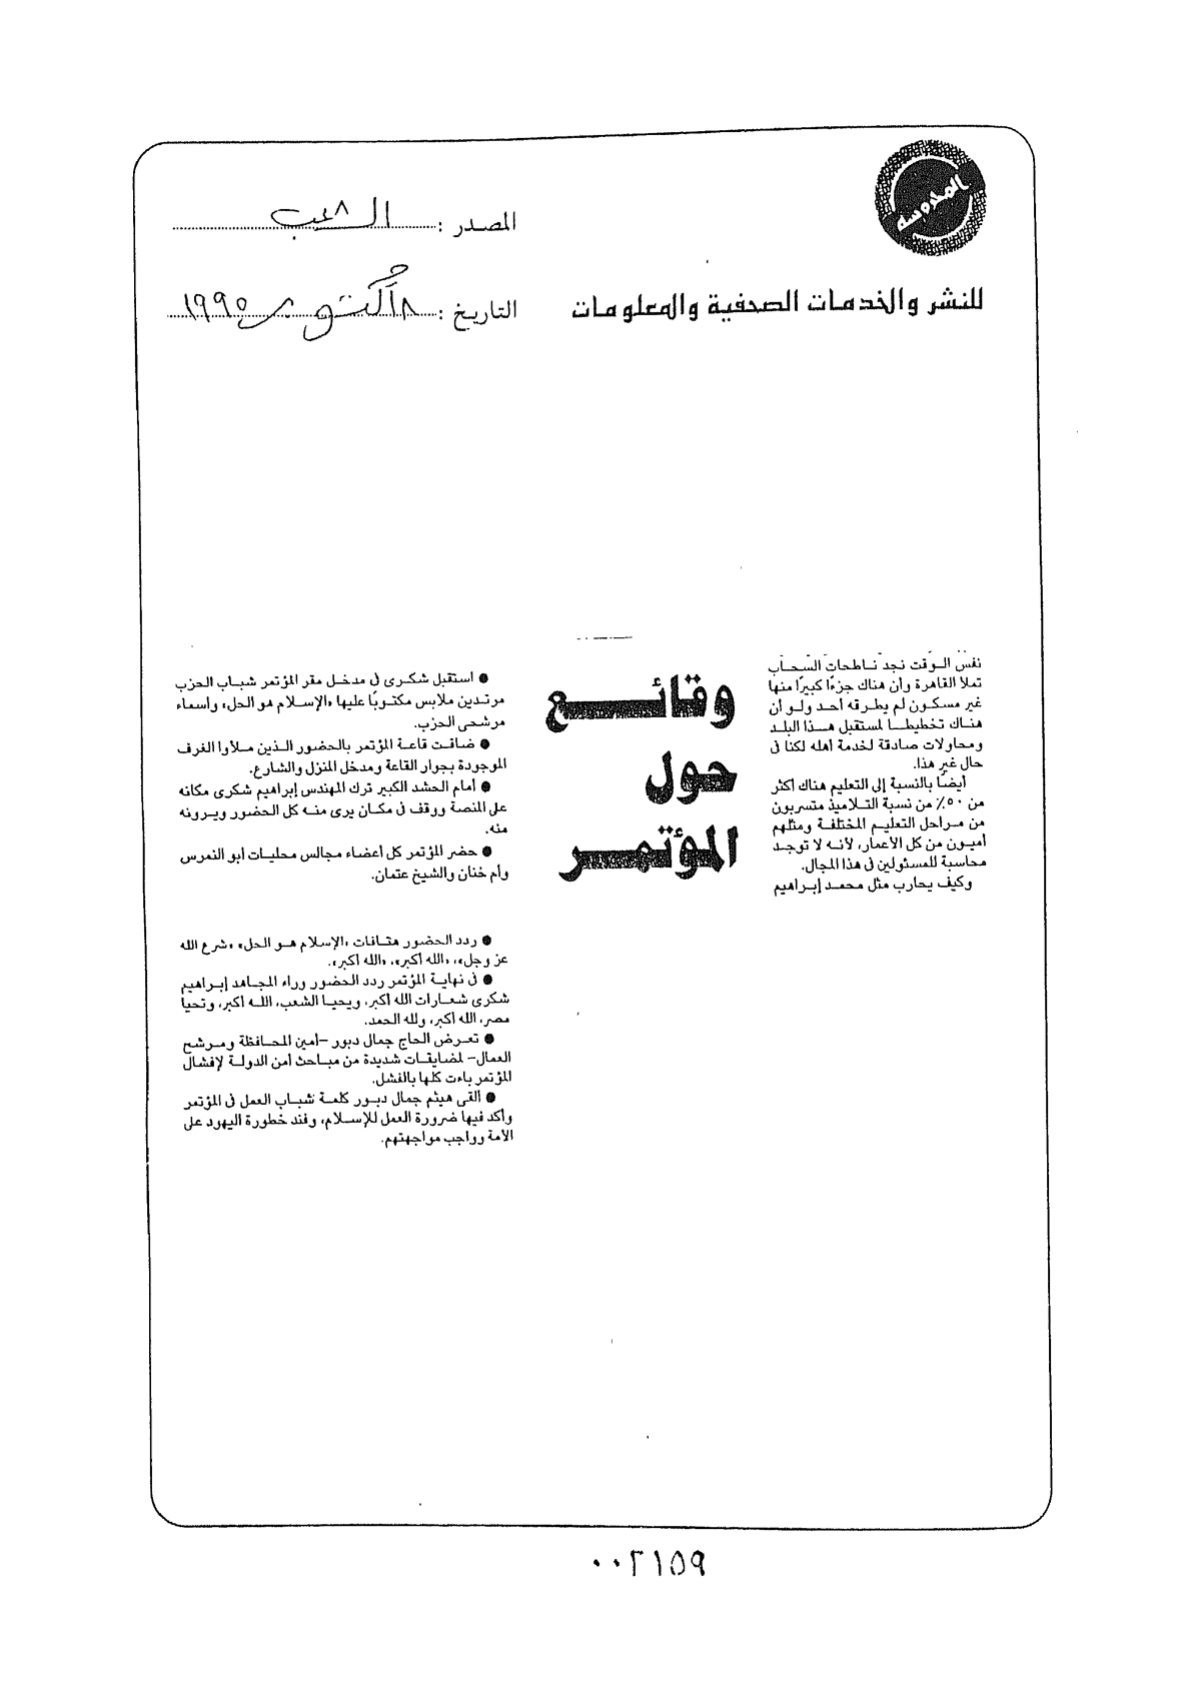 المدوسة
المصدر : الشعب
للنشر والخدمات الصحفية والمعلومات
التاريخ : ١٨ أكتوبر ١٩٩٥
نفس الوقت نجد ناطحات السحاب
تملا القاهرة وأن هناك جزءًا كبيرًا منها
غير مسكون لم يطرقه أحد ولو أن
هناك تخطيطا لمستقبل هذا البلد
ومحاولات صادقة لخدمة أهله لكنا فى
حال غير هذا.
أيضًا بالنسبة إلى التعليم هناك أكثر
من ٥٠٪ من نسبة التلاميذ متسربون
من مراحل التعليم المختلفة ومثلهم
أميون من كل الأعمار، لأنه لا توجد
محاسبة للمسئولين فى هذا المجال.
وكيف يحارب مثل محمد إبراهيم
وقائع
حول
المؤتمر
● استقبل شكرى فى مدخل مقر المؤتمر شباب الحزب
مرتدين ملابس مكتوبًا عليها «الإسلام هو الحل» وأسماء
مرشحى الحزب.
● ضاقت قاعة المؤتمر بالحضور الذين ملأوا الغرف
الموجودة بجوار القاعة ومدخل المنزل والشارع.
● أمام الحشد الكبير ترك المهندس إبراهيم شكرى مكانه
على المنصة ووقف فى مكان يرى منه كل الحضور ويرونه
منه.
● حضر المؤتمر كل أعضاء مجالس محليات أبو النمرس
وأم خنان والشيخ عتمان.
● ردد الحضور هتافات «الإسلام هو الحل» «شرع الله
عز وجل»، «الله أكبر»، «الله أكبر».
● فى نهاية المؤتمر ردد الحضور وراء المجاهد إبراهيم
شكرى شعارات الله أكبر، ويحيا الشعب، الله أكبر، وتحيا
مصر، الله أكبر، ولله الحمد.
● تعرض الحاج جمال دبور –أمين المحافظة ومرشح
العمال– لمضايقات شديدة من مباحث أمن الدولة لإفشال
المؤتمر باءت كلها بالفشل.
● ألقى هيثم جمال دبور كلمة شباب العمل فى المؤتمر
وأكد فيها ضرورة العمل للإسلام، وفند خطورة اليهود على
الأمة وواجب مواجهتهم.
٠٠٢١٥٩